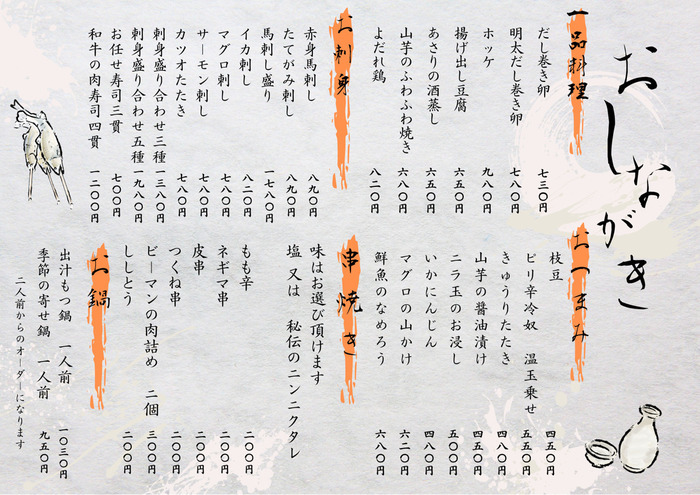 おしながき
一品料理
だし巻き卵 七三〇円
明太だし巻き卵 七八〇円
ホッケ 九八〇円
揚げ出し豆腐 六五〇円
あさりの酒蒸し 六五〇円
山芋のふわふわ焼き 六八〇円
よだれ鶏 八二〇円
お刺身
赤身馬刺し 八九〇円
たてがみ刺し 八九〇円
馬刺し盛り 一七八〇円
イカ刺し 八二〇円
マグロ刺し 七八〇円
サーモン刺し 七八〇円
カツオたたき 七八〇円
刺身盛り合わせ三種 一三八〇円
刺身盛り合わせ五種 一九八〇円
お任せ寿司三貫 七〇〇円
和牛の肉寿司四貫 一二〇〇円
おつまみ
枝豆 四五〇円
ピリ辛冷奴 温玉乗せ 五五〇円
きゅうりたたき 四八〇円
山芋の醤油漬け 五五〇円
ニラ玉のお浸し 五〇〇円
いかにんじん 四八〇円
マグロの山かけ 六二〇円
鮮魚のなめろう 六八〇円
串焼き
味はお選び頂けます
塩 又は 秘伝のニンニクタレ
もも辛 二〇〇円
ネギマ串 二〇〇円
皮串 二〇〇円
つくね串 二〇〇円
ピーマンの肉詰め 二個 三〇〇円
ししとう 二〇〇円
お鍋
出汁もつ鍋 一人前 一〇三〇円
季節の寄せ鍋 一人前 九五〇円
二人前からのオーダーになります